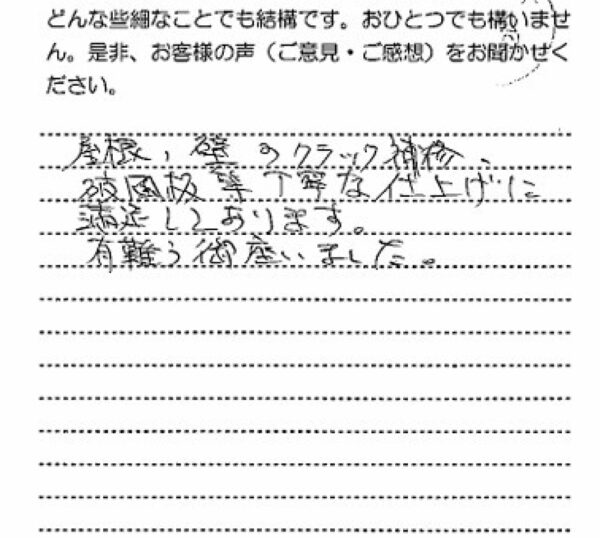 どんな些細なことでも結構です。おひとつでも構いませ
ん。是非、お客様の声（ご意見・ご感想）をお聞かせく
ださい。
屋根、壁のクラック補修、
破風板等丁寧な仕上げに
満足しております。
有難う御座いました。